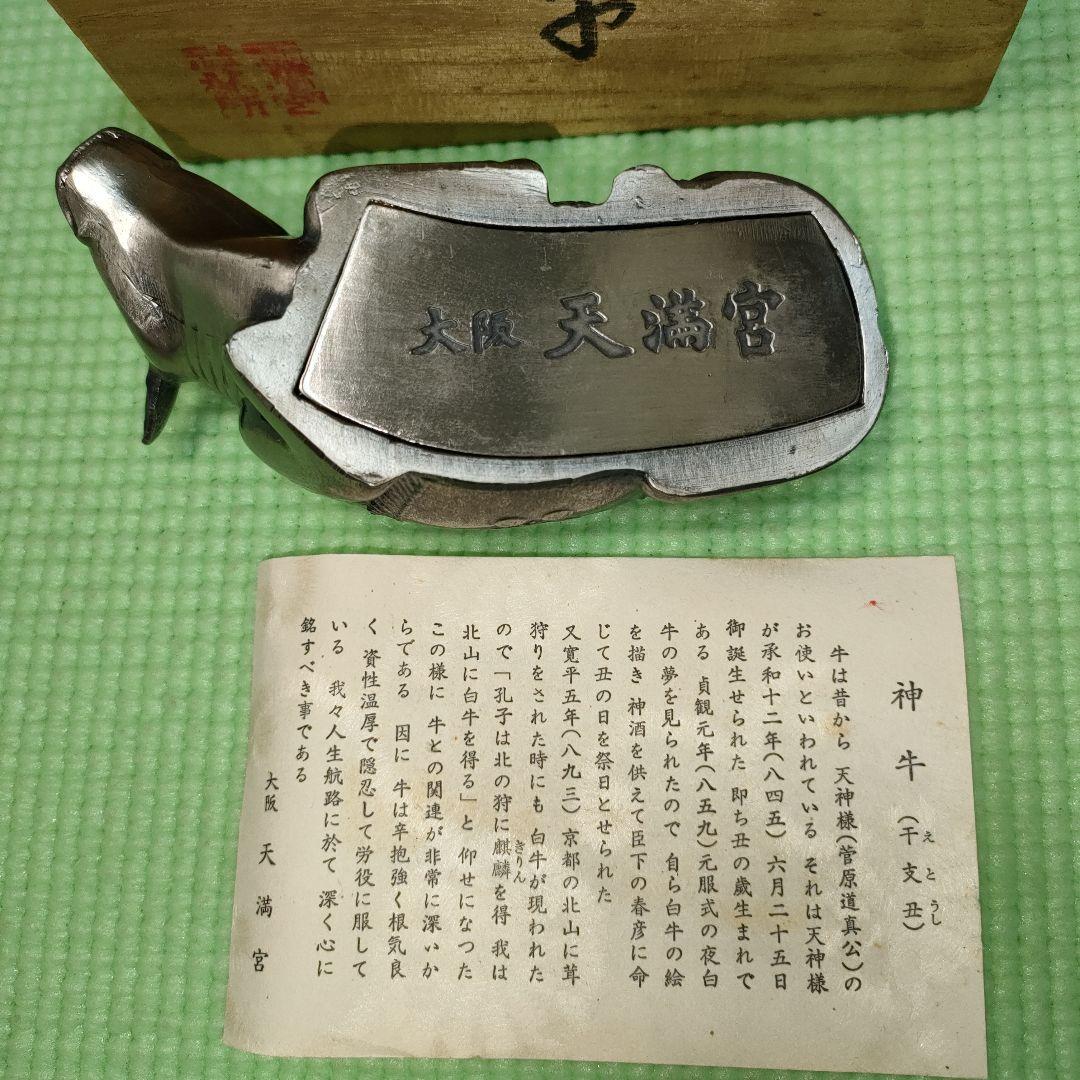 大阪 天満宮
神牛(干支丑)
えとうし
牛は昔から 天神様(菅原道真公)の
お使いといわれている それは天神様
が承和十二年(八四五) 六月二十五日
御誕生せられた 即ち丑の歳生まれで
ある 貞観元年(八五九)元服式の夜白
牛の夢を見られたので 自ら白牛の絵
を描き 神酒を供えて臣下の春彦に命
じて丑の日を祭日とせられた
又寛平五年(八九三) 京都の北山に茸
狩りをされた時にも 白牛が現われた
ので「孔子は北の狩に麒麟を得 我は
きりん
北山に白牛を得る」と 仰せになつた
この様に 牛との関連が非常に深いか
らである 因に 牛は辛抱強く根気良
く 資性温厚で隠忍して労役に服して
いる 我々人生航路に於て 深く心に
銘すべき事である
大阪 天満宮